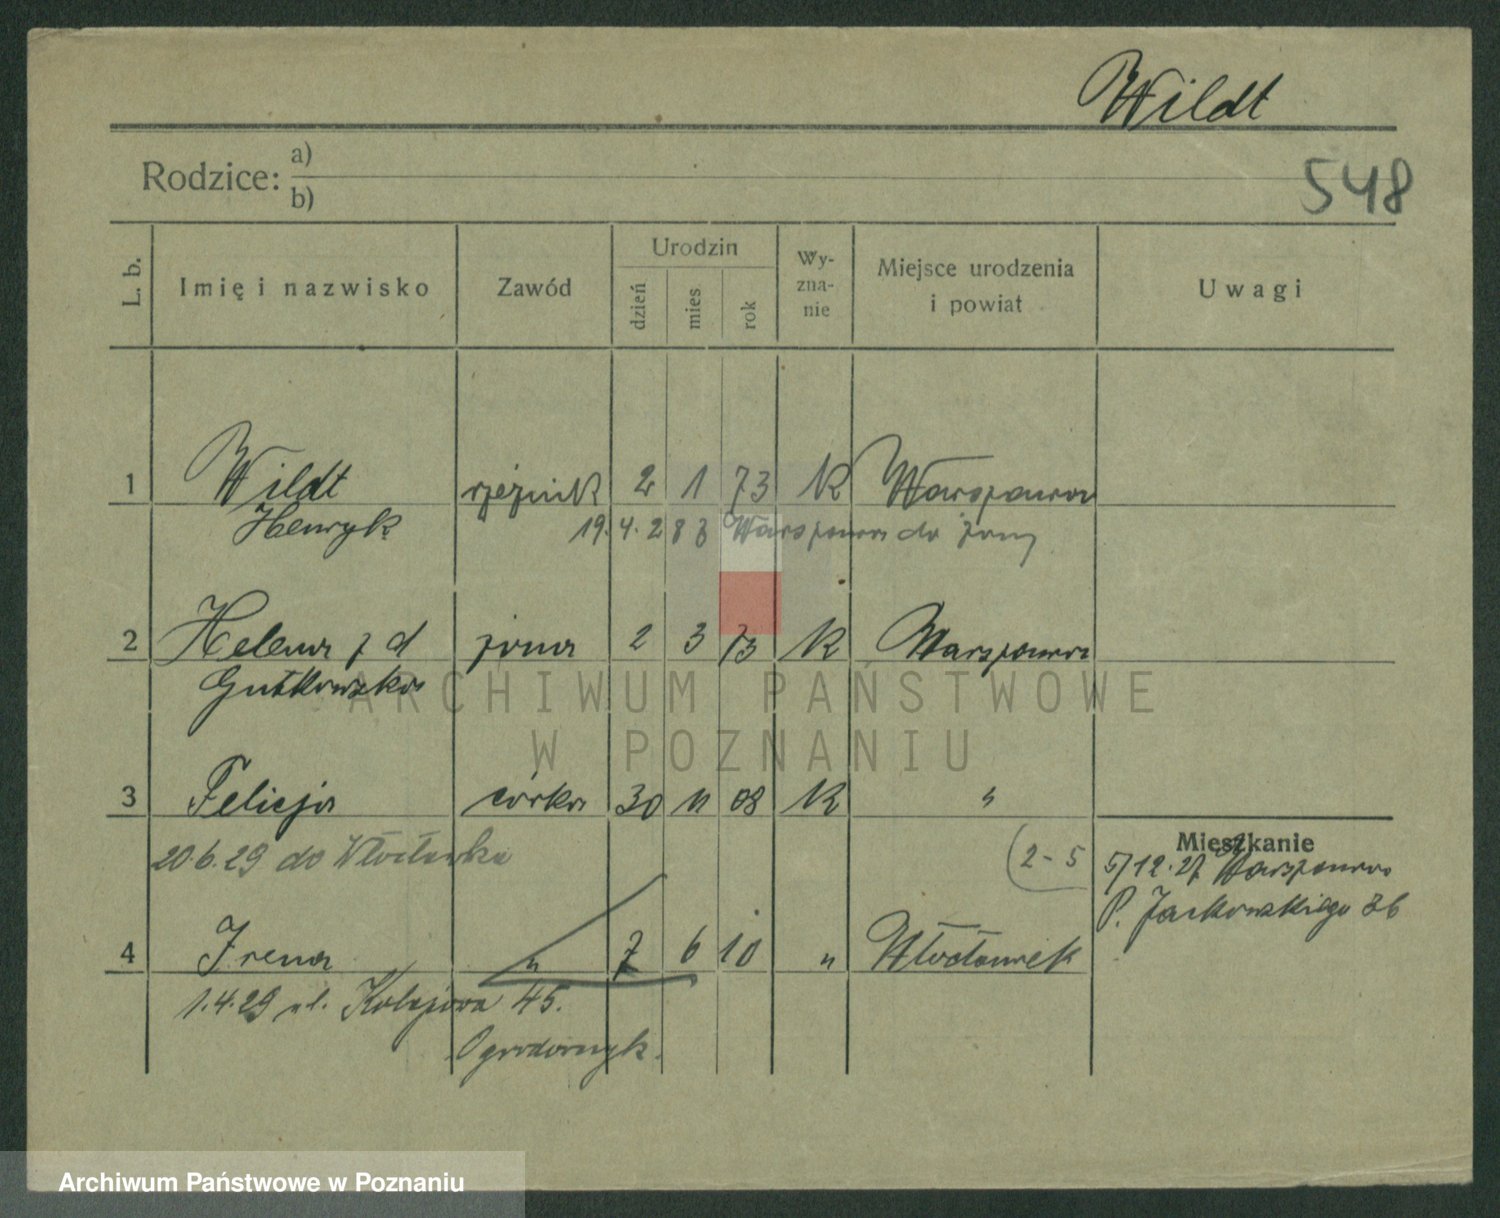 Wildt
548
Rodzice: a)
b)
L. b. Imię i nazwisko Zawód Urodzin dzień mies. rok Wy-zna-nie Miejsce urodzenia i powiat Uwagi
1 Wildt rzeźnik 2 1 73 K Warszawa
Henryk 19.4.28 z Warszawa do żony
2 Helena z d żona 2 3 73 K Warszawa
Gutkowska
ARCHIWUM PAŃSTWOWE
W POZNANIU
3 Felicja córka 30 11 08 K "
Mieszkanie
20.6.29 do Włocławka (2-5 5/12.27 Warszawa
P. Jackowskiego 36
4 Irena " 7 6 10 " Włocławek
1.4.29 ul. Kolejowa 45.
Archiwum Państwowe w Poznaniu